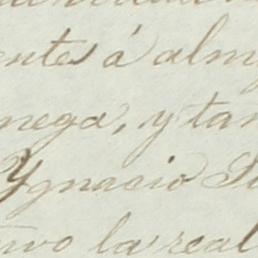 entes á alm
nega, y tan
Ygnacio
vo la real